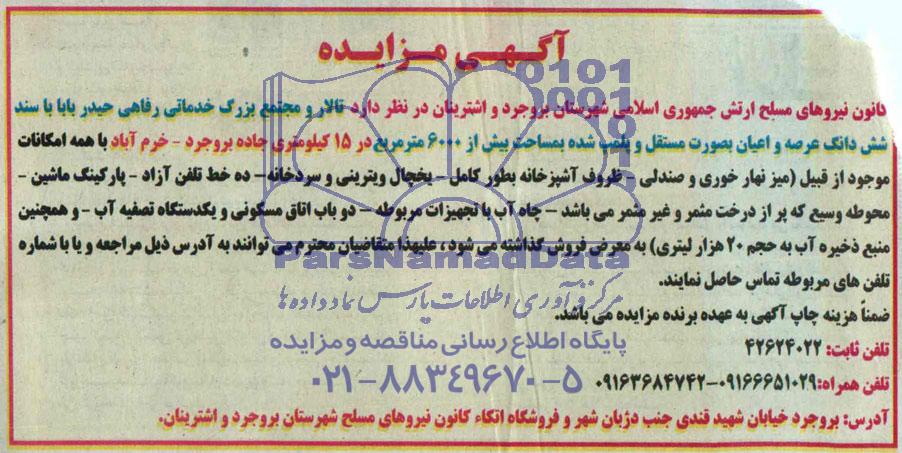 آگهی مزایده
کانون نیروهای مسلح ارتش جمهوری اسلامی شهرستان بروجرد و اشترینان در نظر دارد تالار و مجتمع بزرگ خدماتی رفاهی حیدر بابا با سند
شش دانگ عرصه و اعیان بصورت مستقل و پلمپ شده بمساحت بیش از ۶۰۰۰ مترمربع در ۱۵ کیلومتری جاده بروجرد - خرم آباد با همه امکانات
موجود از قبیل (میز نهار خوری و صندلی - ظروف آشپزخانه بطور کامل - یخچال ویترینی و سردخانه - ده خط تلفن آزاد - پارکینگ ماشین -
محوطه وسیع که پر از درخت مثمر و غیر مثمر می باشد - چاه آب با تجهیزات مربوطه - دو باب اتاق مسکونی و یکدستگاه تصفیه آب - و همچنین
منبع ذخیره آب به حجم ۲۰ هزار لیتری) به معرض فروش گذاشته می شود ، علیهذا متقاضیان محترم می توانند به آدرس ذیل مراجعه و یا با شماره
تلفن های مربوطه تماس حاصل نمایند.
ضمناً هزینه چاپ آگهی به عهده برنده مزایده می باشد.
تلفن ثابت: ۴۲۶۲۴۰۲۲
تلفن همراه: ۰۹۱۶۶۶۵۱۰۲۹-۰۹۱۶۳۶۸۴۷۴۲
آدرس: بروجرد خیابان شهید قندی جنب دژبان شهر و فروشگاه اتکاء کانون نیروهای مسلح شهرستان بروجرد و اشترینان.
ParsNamadData
مرکز فرآوری اطلاعات پارس نماد داده ها
پایگاه اطلاع رسانی مناقصه و مزایده
۰۲۱-۸۸۳۴۹۶۷۰-۵